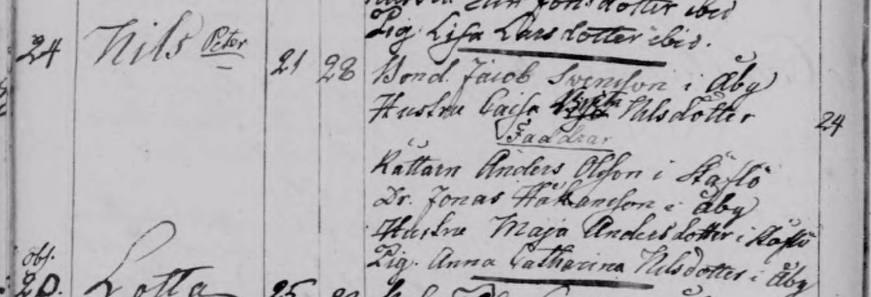 dotter ibid
Pig. Lisa Lars dotter ibid.
24 Nils Peter 21 28 Bond. Jacob Svensson i Åby
Hustru Caisa Nilsdotter 24
Faddrar
Rättarn Anders Olsson i Stäflö
Dr. Jonas Håkansson i Åby
Hustru Maja Andersdotter i Stäflö
Pig. Anna Catharina Nilsdotter i Åby
obs.
Lotta 25